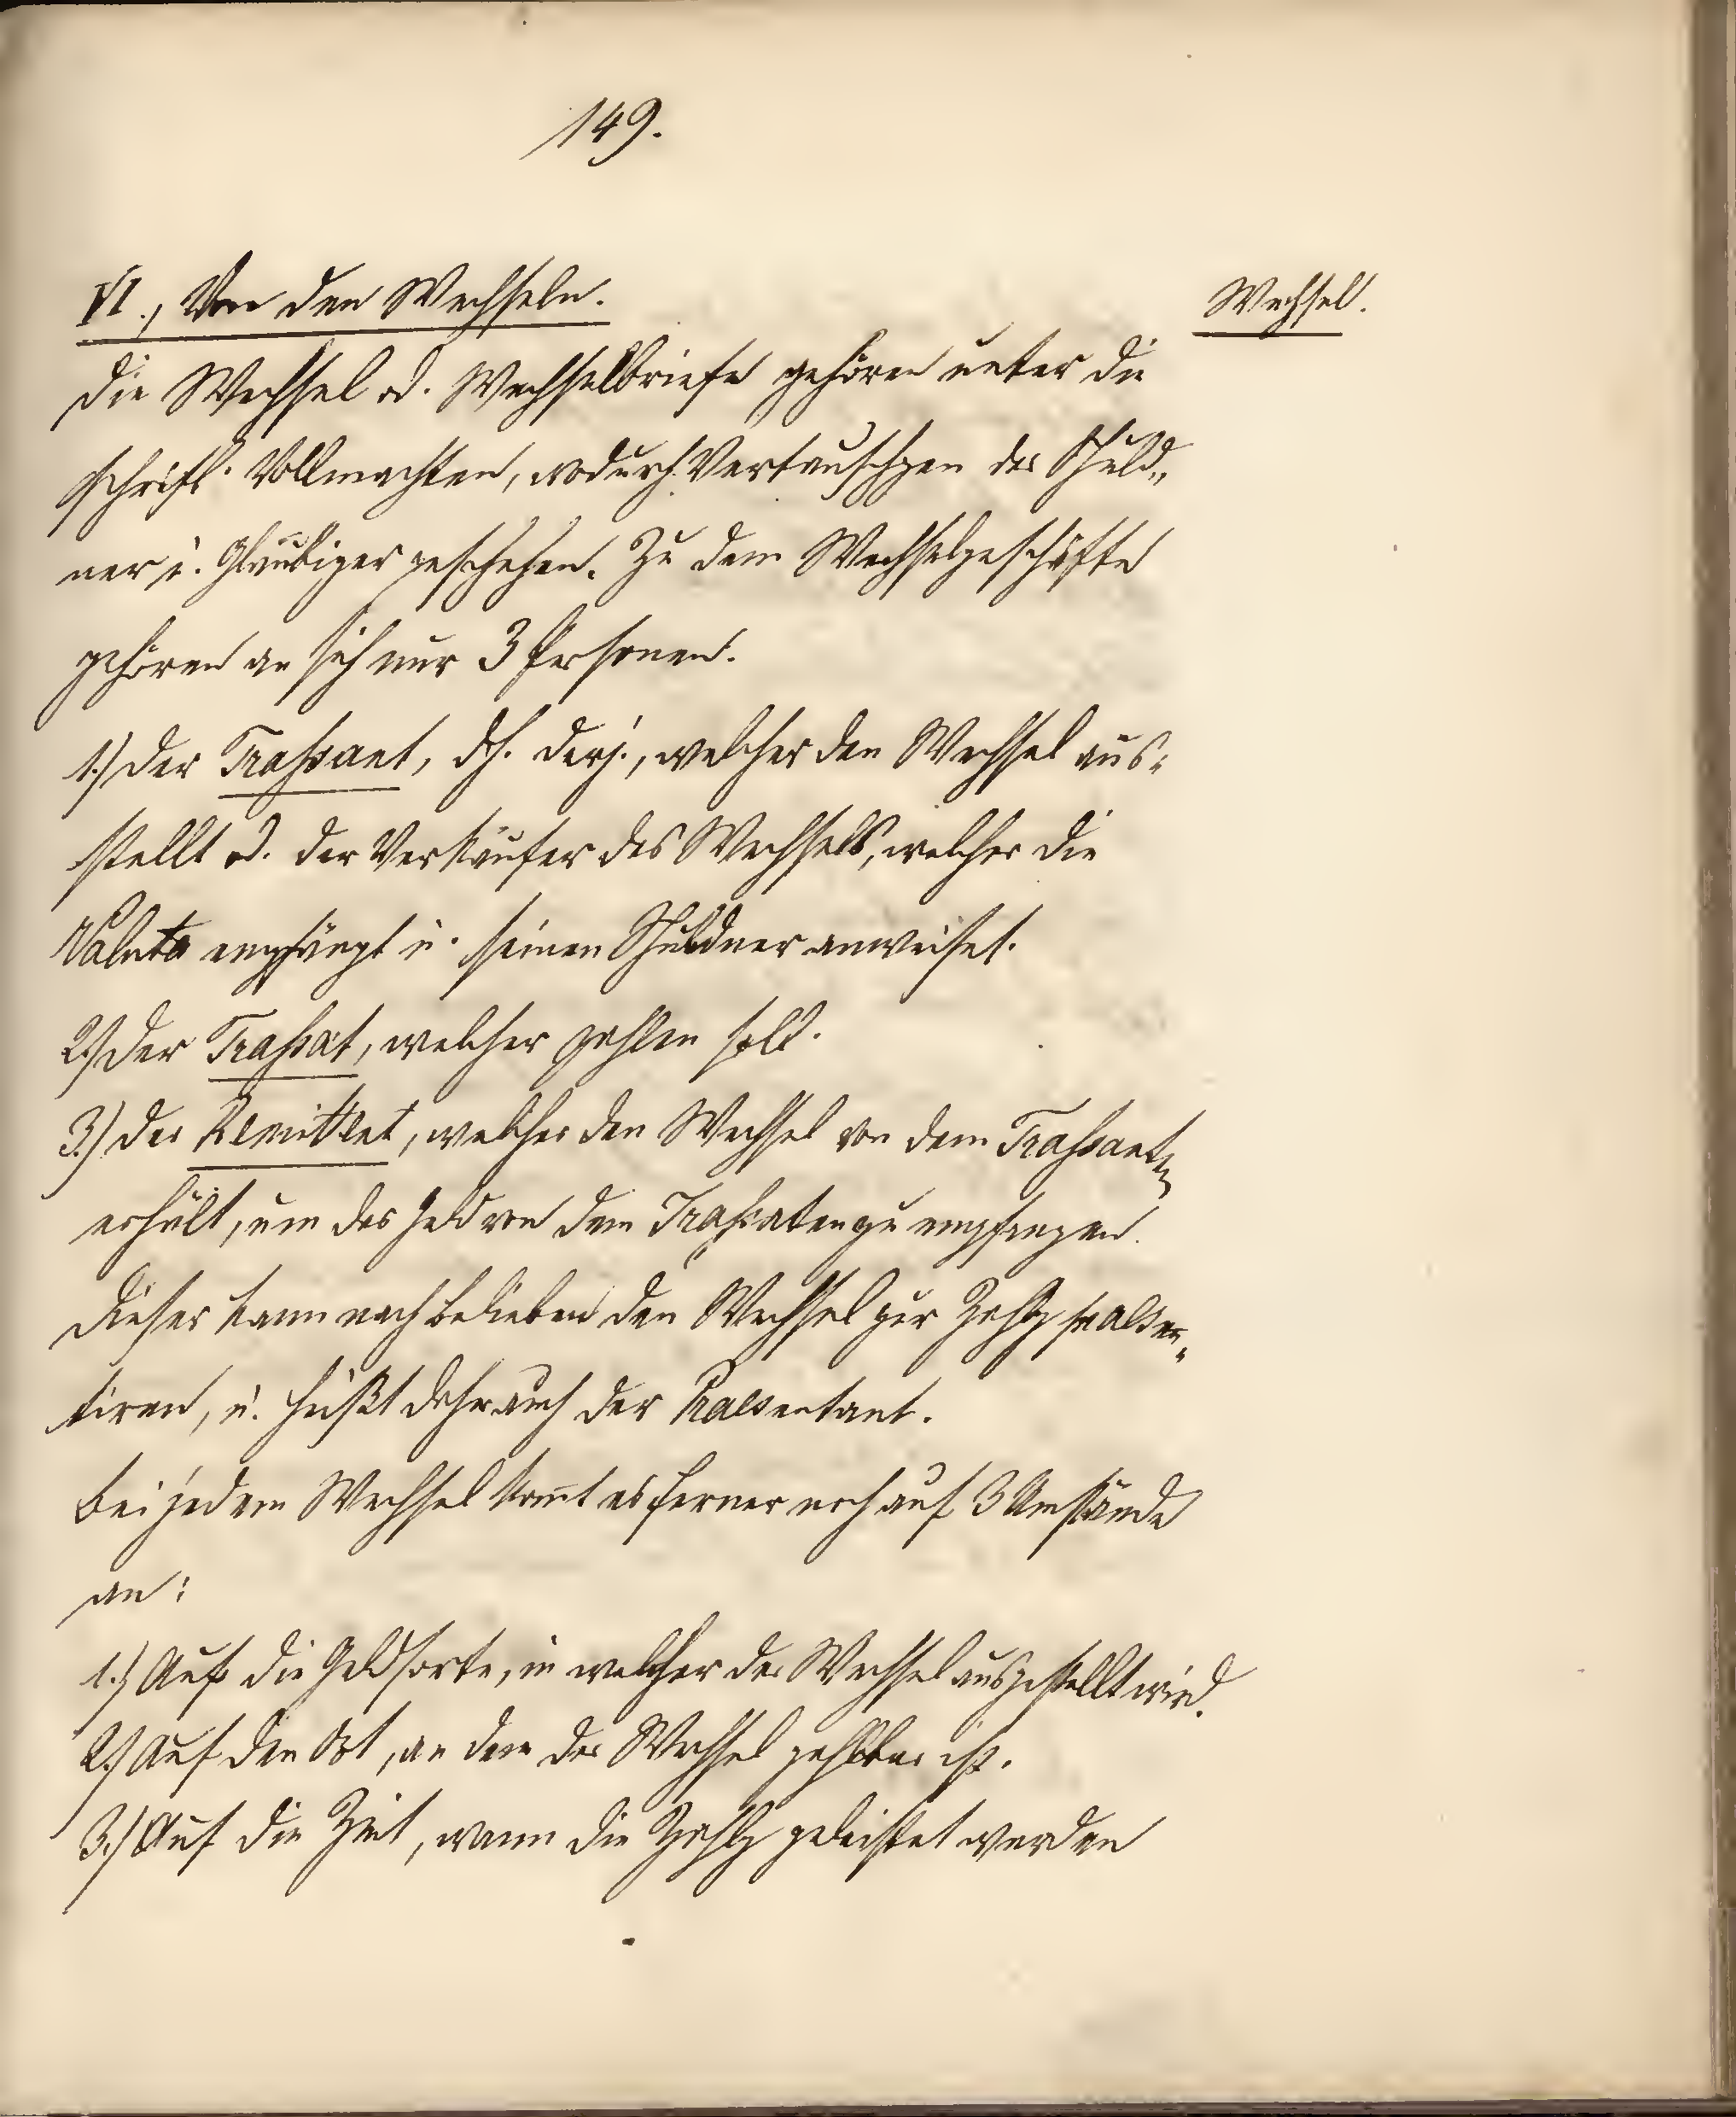 149.
VI., Von den Wechseln.
Wechsel.
Die Wechsel od. Wechselbriefe gehören unter die
schriftl. Vollmachten, wodurch Vertauschgen der Schuld„
ner u. Gläubiger geschehen. Zu dem Wechselgeschäfte
gehören an sich nur 3 Personen.
1.) Der Trassant, dh. derj., welcher den Wechsel aus„
stellt od. der Verkäufer des Wechsels, welcher die
Valuta empfängt u. seinen Schuldner anweiset.
2.) Der Trassat, welcher zahlen soll.
3.) Der Remittent, welcher den Wechsel von dem Trassanten
erhält, um das Geld von dem Trassaten zu empfangen.
Dieser kann nach Belieben den Wechsel zur Zahlg praesen„
tiren, u. heißt daher auch der Praesentant.
Bei jedem Wechsel kom̄t es ferner noch auf 3 Umstände
an:
1.) Auf die Geldsorte, in welcher der Wechsel ausgestellt wird.
2.) Auf den Ort, an dem der Wechsel zahlbar ist.
3.) Auf die Zeit, wann die Zahlg geleistet werden